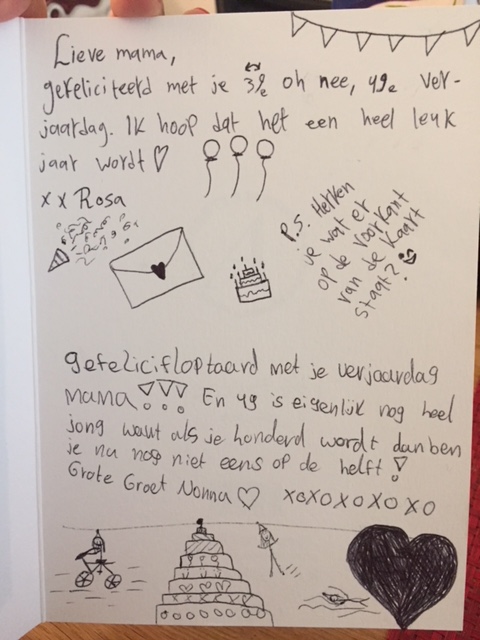 Lieve mama,
gefeliciteerd met je 39e oh nee, 49e ver-
jaardag. Ik hoop dat het een heel leuk
jaar wordt ♡
x x Rosa
P.S. Herken
je wat er
op de voorkant
van de kaart
staat?
gefelicifloptaard met je verjaardag
mama!!! En 49 is eigenlijk nog heel
jong want als je honderd wordt dan ben
je nu nog niet eens op de helft!
Grote Groet Nonna ♡ xoxoxoxoxo